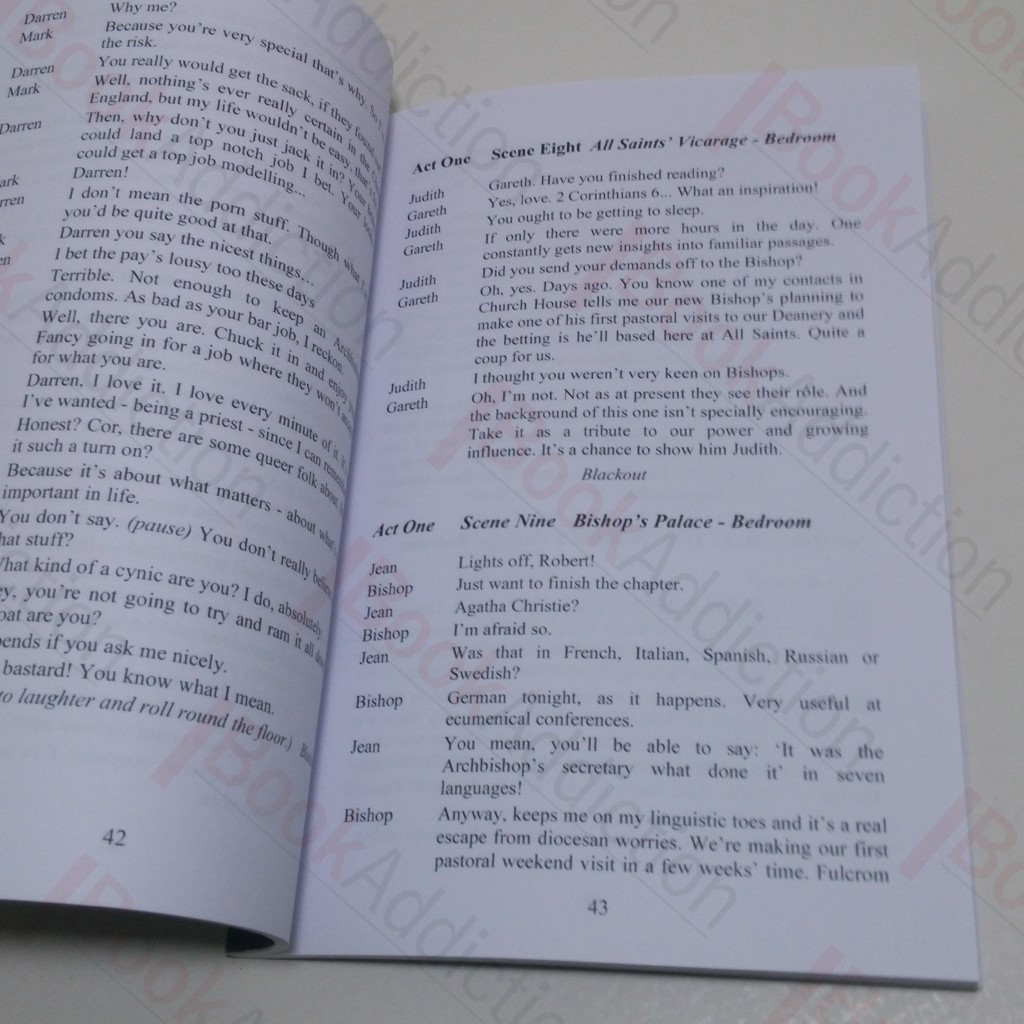 Darren Why me?
Mark Because you're very special that's why. So
the risk.
Darren You really would get the sack, if they found
Mark Well, nothing's ever really certain in the
England, but my life wouldn't be easy, that's
Darren Then, why don't you just jack it in? Your
could land a top notch job I bet. Your
could get a top job modelling...
ark Darren!
rren I don't mean the porn stuff. Though what
you'd be quite good at that.
k Darren you say the nicest things...
en I bet the pay's lousy too these days
Terrible. Not enough to keep an
condoms. As bad as your bar job, I reckon.
Well, there you are. Chuck it in and enjoy
Fancy going in for a job where they won't
for what you are.
Darren, I love it. I love every minute of it.
I've wanted - being a priest - since I can
Honest? Cor, there are some queer folk about.
it such a turn on?
Because it's about what matters - about what's
important in life.
You don't say. (pause) You don't really
hat stuff?
What kind of a cynic are you? I do, absolutely.
ey, you're not going to try and ram it all
oat are you?
ends if you ask me nicely.
bastard! You know what I mean.
to laughter and roll round the floor.)
42
Act One Scene Eight All Saints' Vicarage - Bedroom
Judith Gareth. Have you finished reading?
Gareth Yes, love. 2 Corinthians 6... What an inspiration!
Judith You ought to be getting to sleep.
Gareth If only there were more hours in the day. One
constantly gets new insights into familiar passages.
Judith Did you send your demands off to the Bishop?
Gareth Oh, yes. Days ago. You know one of my contacts in
Church House tells me our new Bishop's planning to
make one of his first pastoral visits to our Deanery and
the betting is he'll based here at All Saints. Quite a
coup for us.
Judith I thought you weren't very keen on Bishops.
Gareth Oh, I'm not. Not as at present they see their rôle. And
the background of this one isn't specially encouraging.
Take it as a tribute to our power and growing
influence. It's a chance to show him Judith.
Blackout
Act One Scene Nine Bishop's Palace - Bedroom
Jean Lights off, Robert!
Bishop Just want to finish the chapter.
Jean Agatha Christie?
Bishop I'm afraid so.
Jean Was that in French, Italian, Spanish, Russian or
Swedish?
Bishop German tonight, as it happens. Very useful at
ecumenical conferences.
Jean You mean, you'll be able to say: 'It was the
Archbishop's secretary what done it' in seven
languages!
Bishop Anyway, keeps me on my linguistic toes and it's a real
escape from diocesan worries. We're making our first
pastoral weekend visit in a few weeks' time. Fulcrom
43
BookAddiction